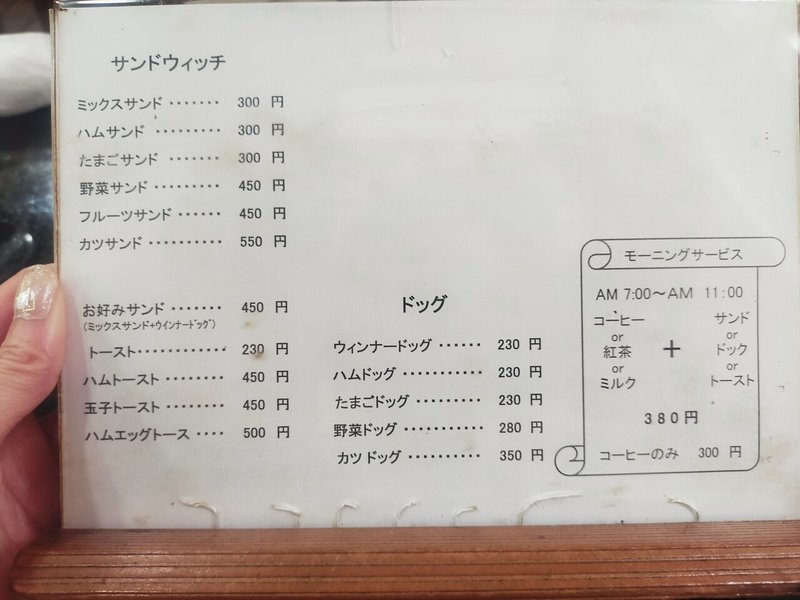 サンドウィッチ
ミックスサンド ······· 300 円
ハムサンド ········· 300 円
たまごサンド ······· 300 円
野菜サンド ········· 450 円
フルーツサンド ······ 450 円
カツサンド ·········· 550 円
お好みサンド ······· 450 円
(ミックスサンド+ウインナードッグ)
トースト············ 230 円
ハムトースト ······· 450 円
玉子トースト ······· 450 円
ハムエッグトース ···· 500 円
ドッグ
ウィンナードッグ ······ 230 円
ハムドッグ ·········· 230 円
たまごドッグ ········· 230 円
野菜ドッグ ··········· 280 円
カツドッグ ·········· 350 円
モーニングサービス
AM 7:00～AM 11:00
コーヒー
or
紅茶
or
ミルク
+
サンド
or
ドック
or
トースト
380円
コーヒーのみ 300 円